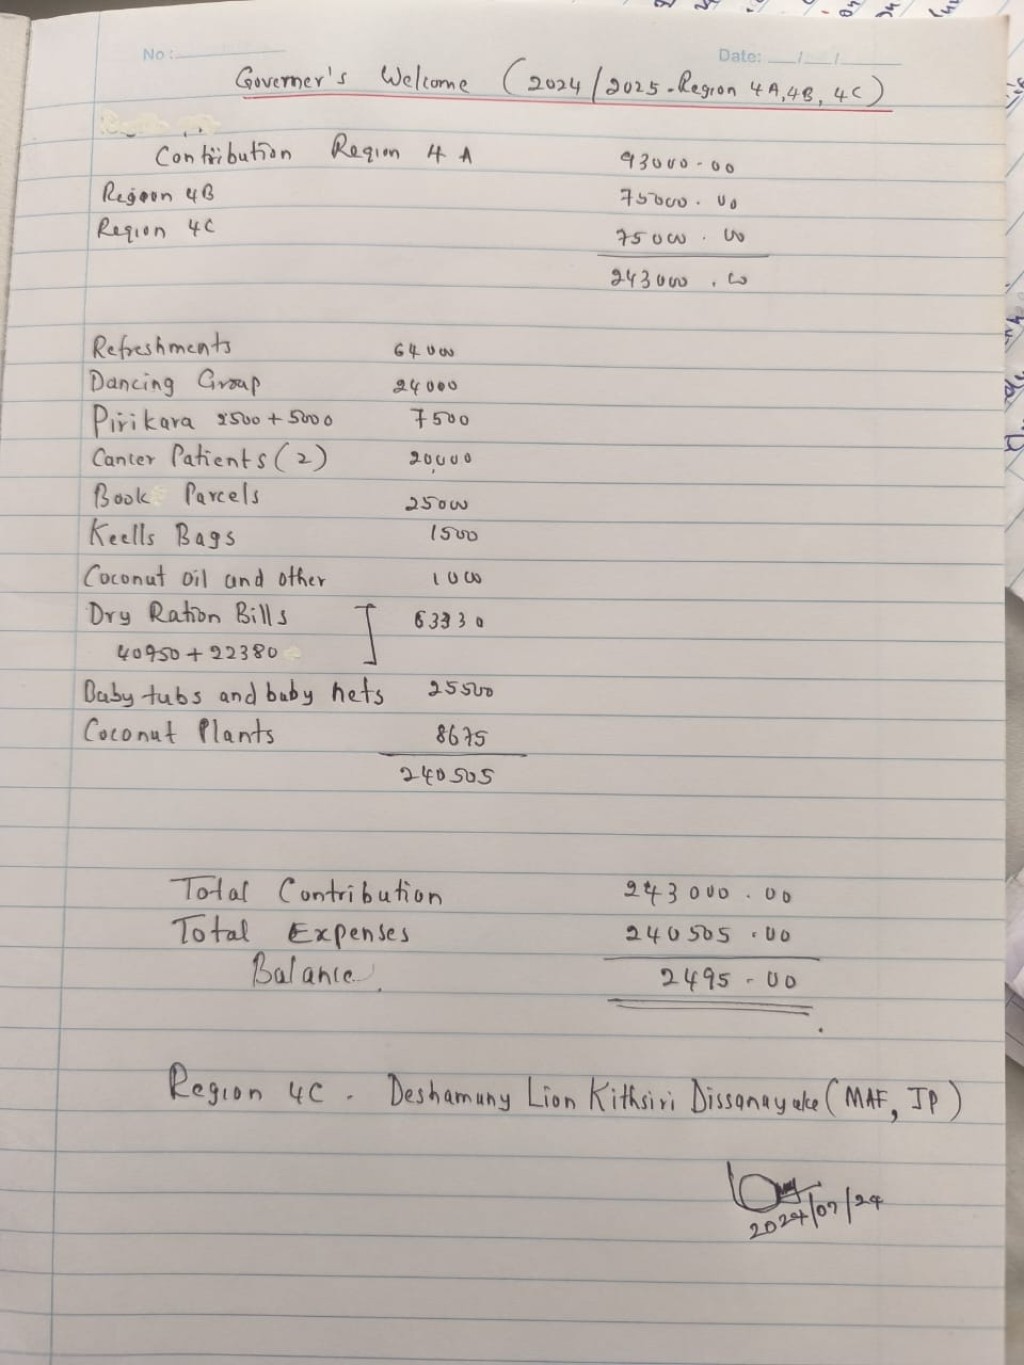 No:
Date: __/__/__
Governer's Welcome (2024/2025-Region 4A,4B, 4C)
Contribution Region 4 A 93000-00
Region 4B 75000.00
Region 4C 75000.00
243000.00
Refreshments 64000
Dancing Group 24000
Pirikara 2500+5000 7500
Cancer Patients (2) 20,000
Book Parcels 25000
Keells Bags 1500
Coconut oil and other 1000
Dry Ration Bills ] 63330
40950+22380
Baby tubs and baby nets 25500
Coconut Plants 8675
240505
Total Contribution 243000.00
Total Expenses 240505.00
Balance. 2495-00
Region 4C - Deshamuny Lion Kithsiri Dissanayake (MAF, JP)
2024/07/24